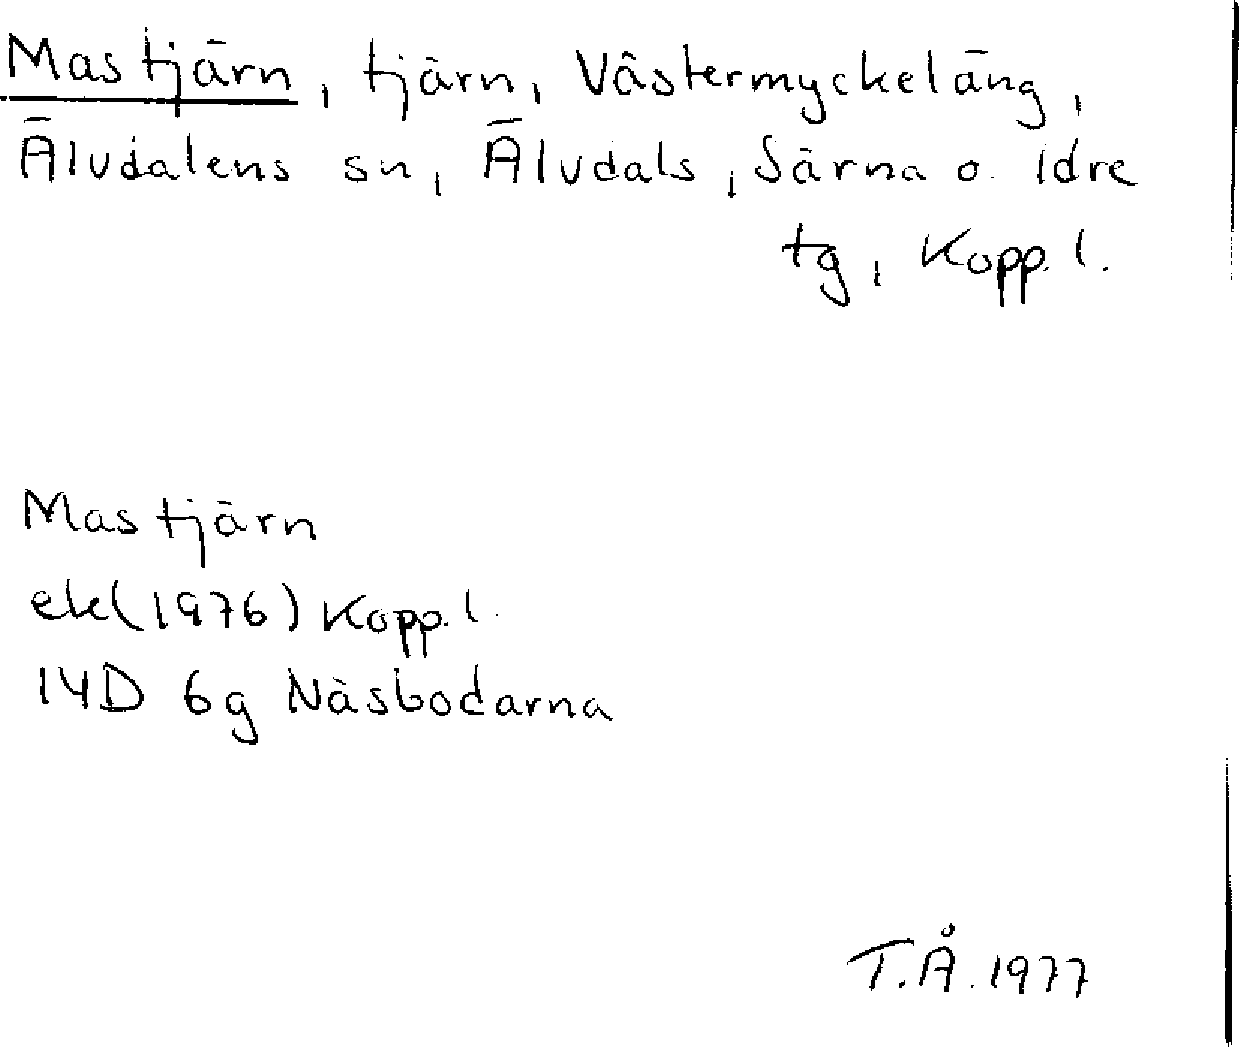 Mastjärn, tjärn, Västermyckeläng,
Älvdalens sn, Älvdals, Särna o. Idre
tg, Kopp. l.
Mastjärn
ek (1976) Kopp. l.
14D 6g Näsbodarna
T.Å. 1977